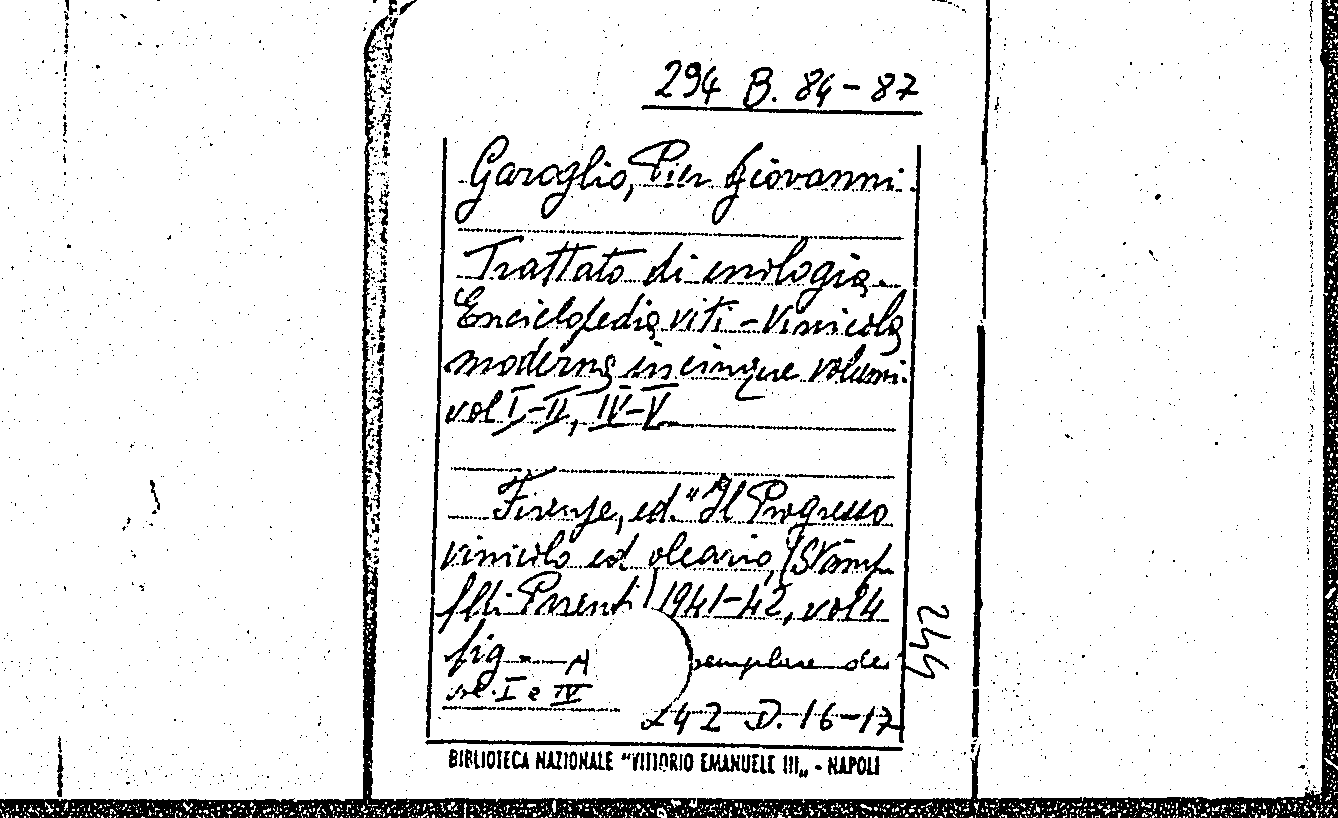 294 B. 84-87
Garoglio, Pier Giovanni.
Trattato di enologia.-
Enciclopedia viti-vinicola
moderna in cinque volumi.
vol I-II, IV-V.
Firenze, ed. "Il Progresso
vinicolo ed oleario, (Stamp.
f.lli Parenti) 1941-42, vol 4
fig. - A emplare dei
vol. I e IV
242 D. 16-17
244
BIBLIOTECA NAZIONALE "VITTORIO EMANUELE III„ - NAPOLI